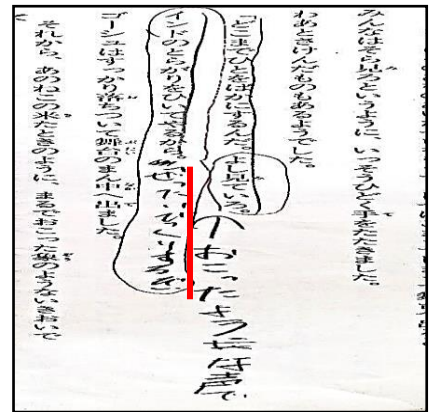 みんなはそら出ろというように、いっそうひどく手をたたきました。
わあとさけんだものもあるようでした。
「どこまでひとをばかにするんだ。よし見ていろ。
おこったような声で
インドのとらがりをひいてやるから。
ゴーシュはすっかり落ちついて舞台のまん中へ出ました。
それから、あのねこの来たときのように、まるでおこった象のようないきおいで